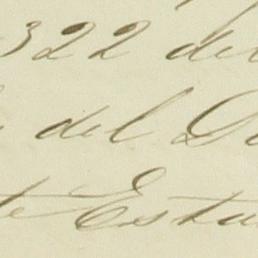 322 del
del Go
te Estu